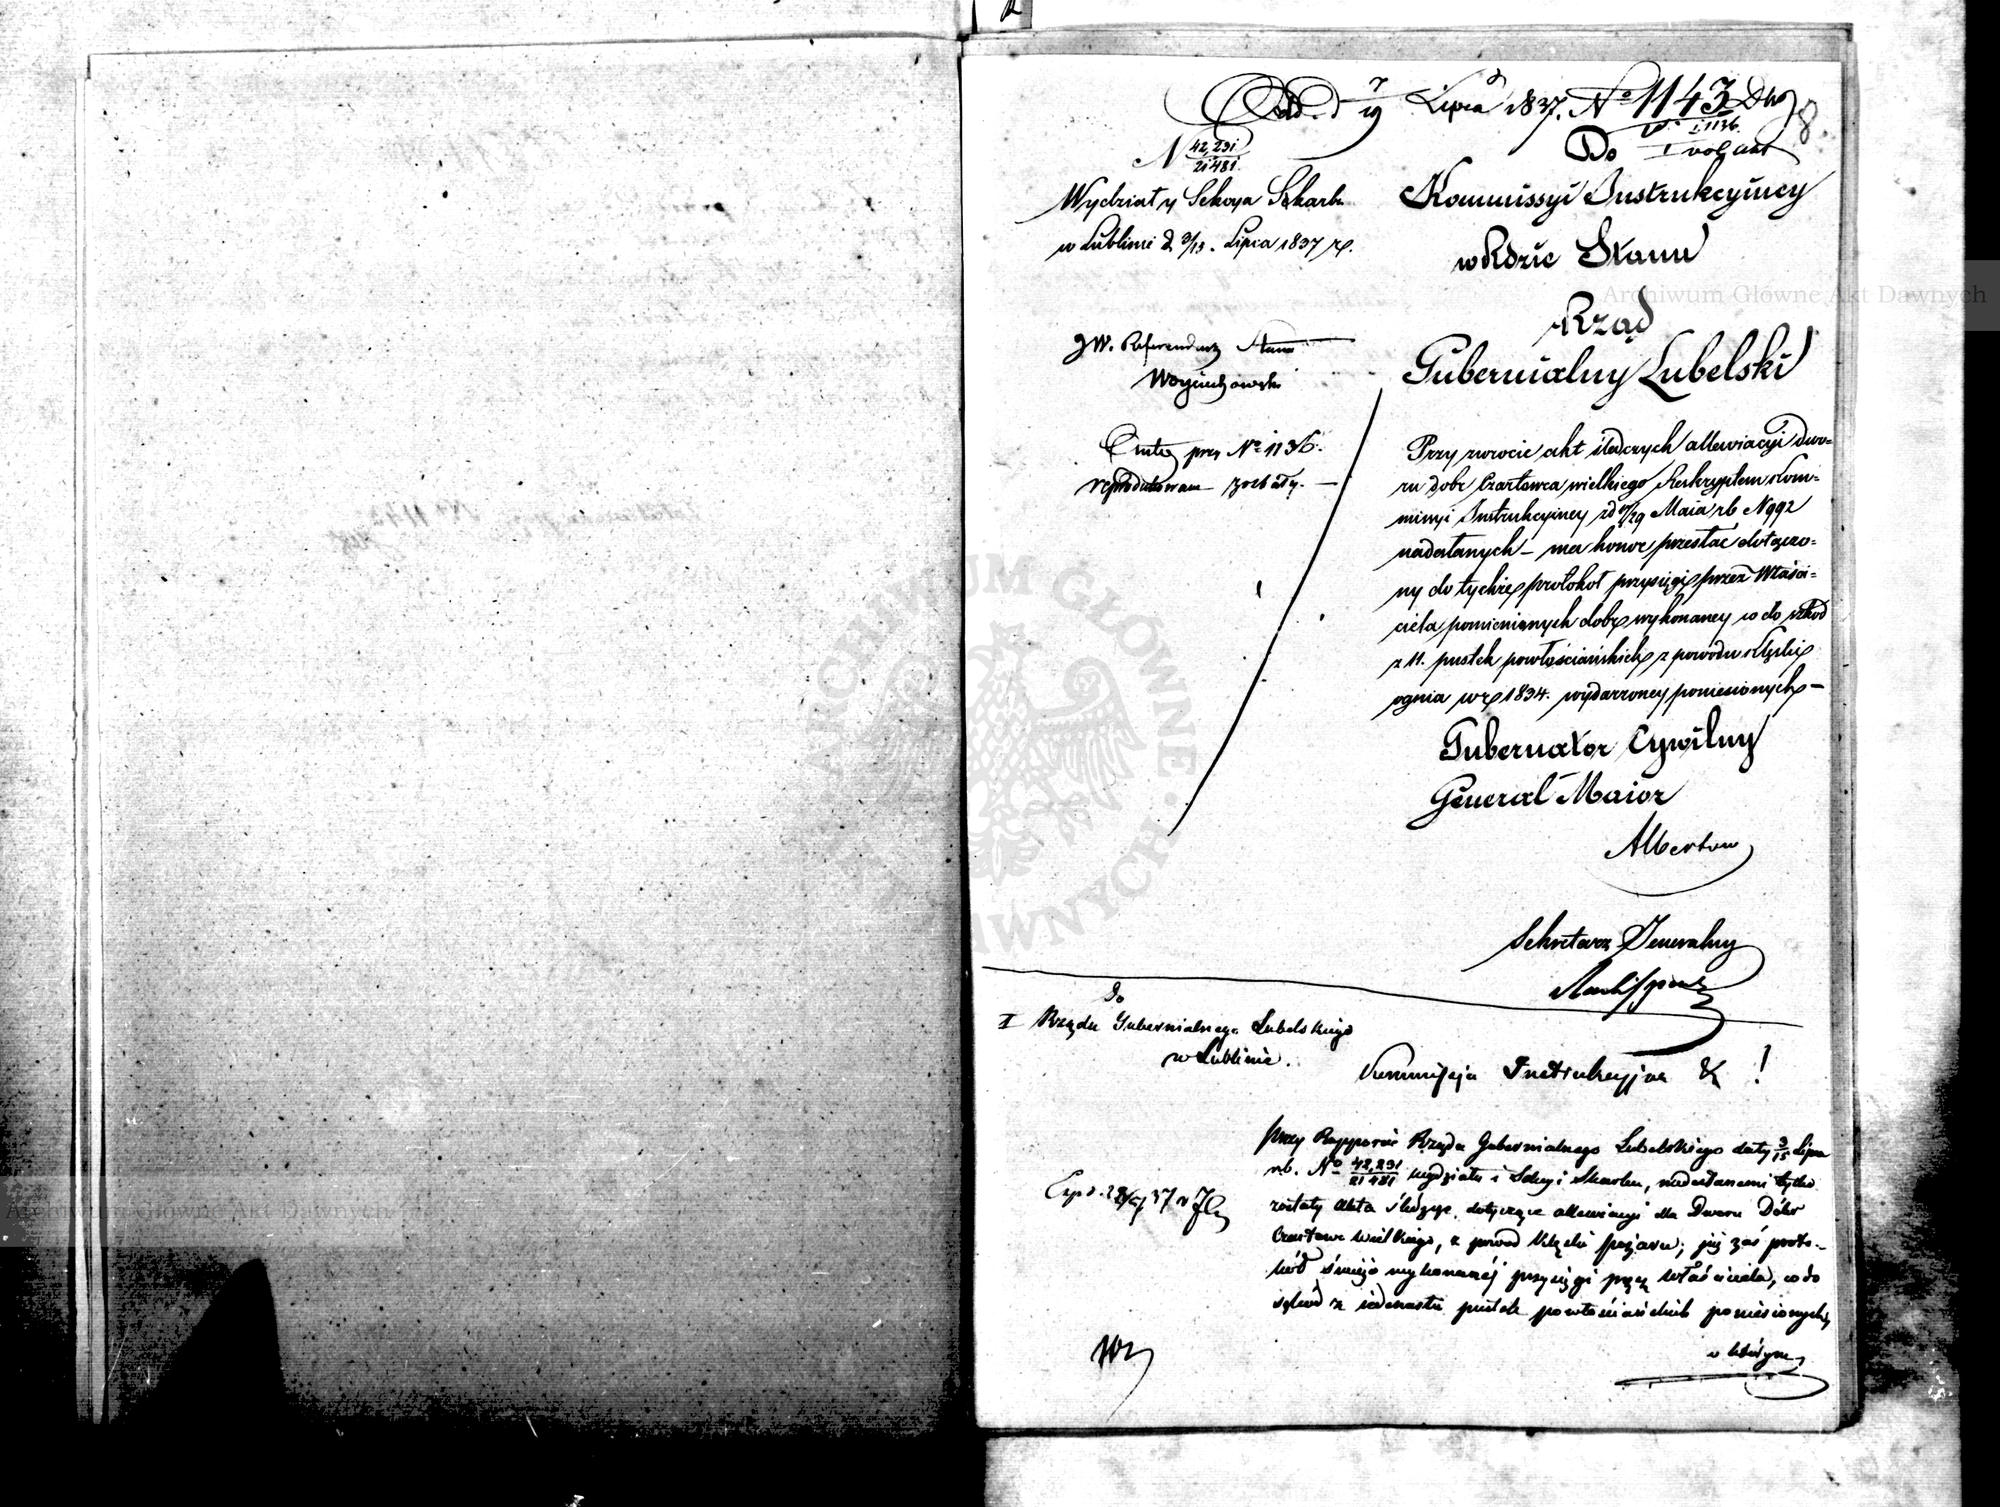 Odd. d 7/19 Lipca 1837. No 1143
8.
N 42,231/21481.
Wydział y Sekcya Skarb.
w Lublinie d 3/15. Lipca 1837 r.
Do
Kommissyi Instrukcyiney
w Rdzie Stanu
Rząd
Gubernialny Lubelski
JW. Referendarz Stanu
Woyciechowski
przy No 1136.
zostały. —
Przy zwrocie akt śledczych allewiacyi dwo-
ru dobr Czartowca wielkiego Reskryptem Kom-
missyi Instrukcyiney z d 17/29 Maia rb N 992
nadesłanych — ma honor przesłać dołączo-
ny do tychże protokoł przysięgi przez Właści-
ciela pomienionych dobr wykonaney co do szkod
z 11. pustek powłościańskich z powodu klęski
ognia w r 1834. wydarzoney poniesionych —
Gubernator Cywilny
Generał Maior
Albertow
Sekretarz Jeneralny
Do
I Rządu Gubernialnego Lubelskiego
w Lublinie.
Kommissja Instrukcyjna & !
Przy Rapporcie Rządu Gubernialnego Lubelskiego daty 3/15 Lipca
rb. No 42,231/21481 wydziału i Sekcyi Skarbu, nadesłanemi tylko
zostały akta śledcze, dotyczące allewiacyi dla Dworu Dóbr
Czartowc Wielkiego, z powod klęski pożaru; już zaś proto-
kół wykonanéj przysięgi przez właściciela, co do
szkód z jedenastu pustek powłościańskich poniesionych,
w którym